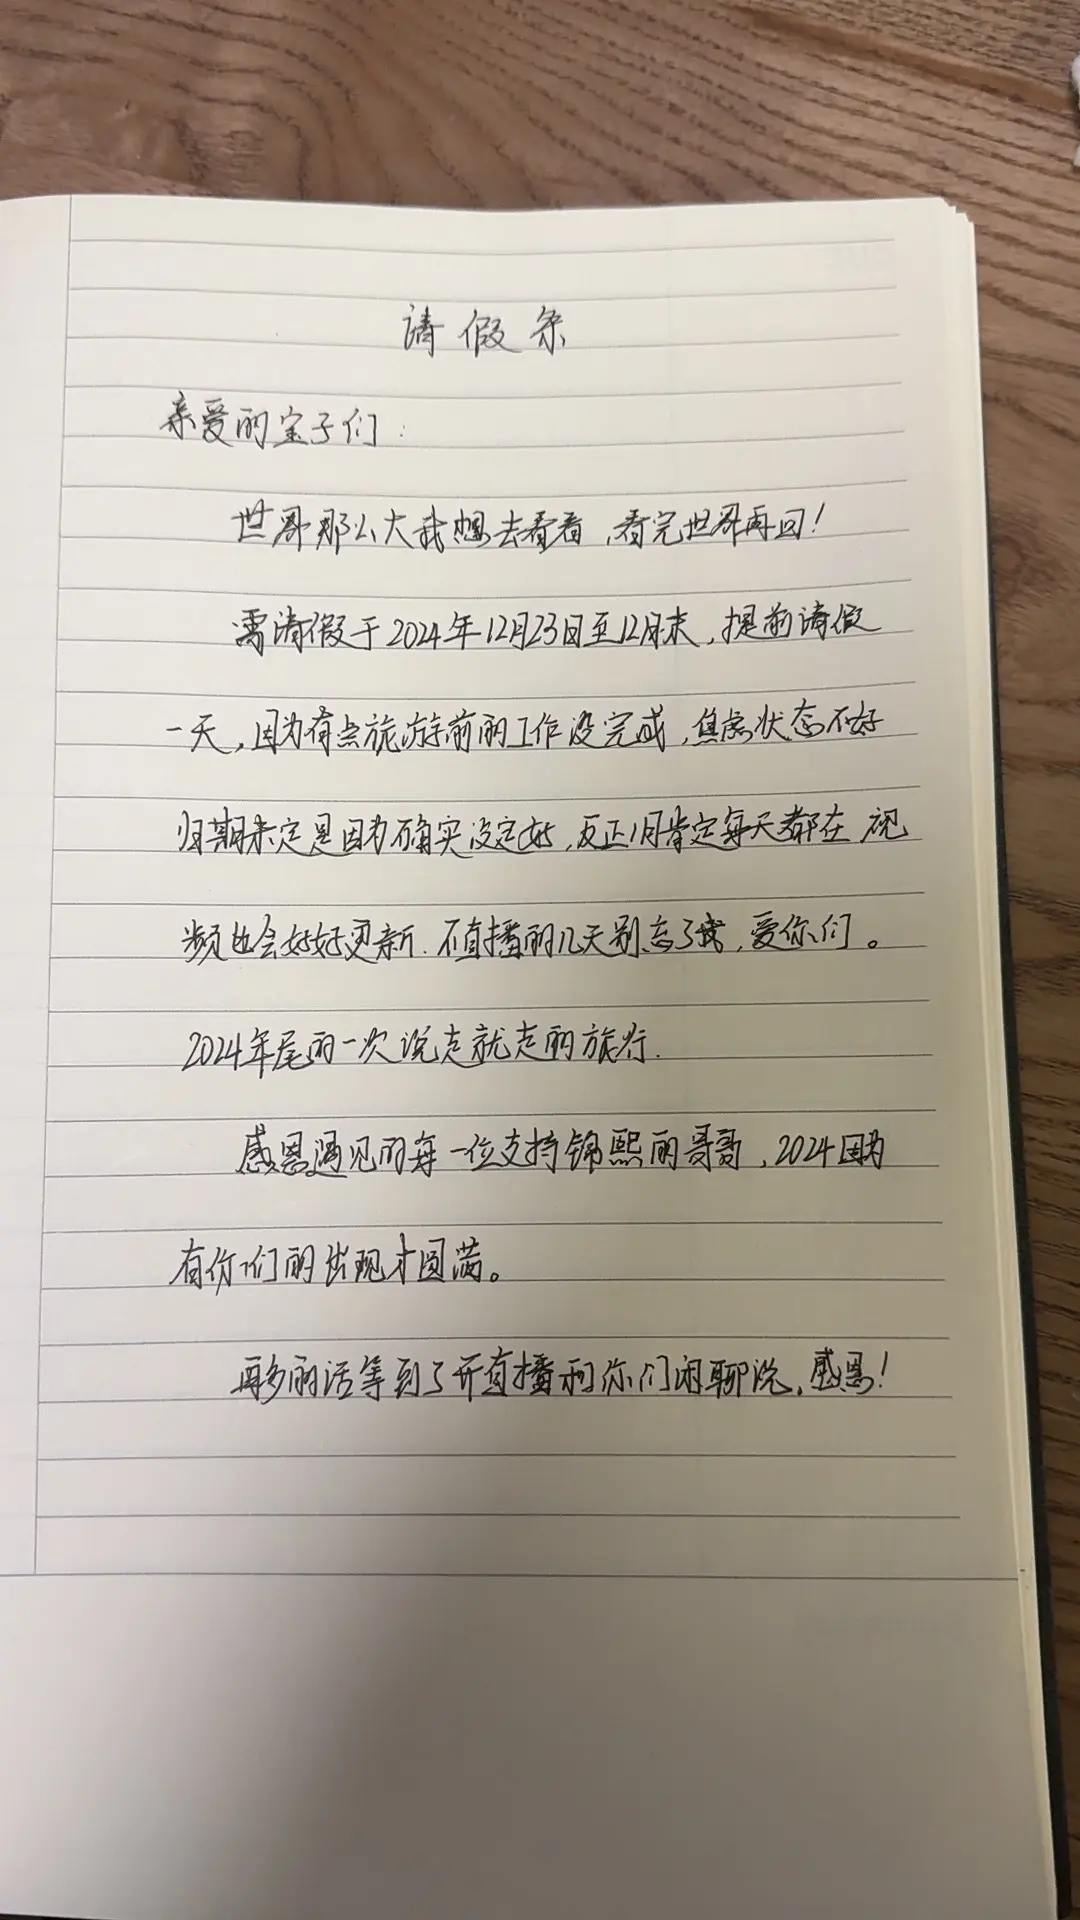 请假条
亲爱的宝子们：
世界那么大我想去看看，看完世界再回！
需请假于2024年12月23日至12月末，提前请假
一天，因为有点旅游前的工作没完成，焦虑状态不好
归期未定是因为确实没定好，反正1月肯定每天都在 视
频也会好好更新．不直播的几天别忘了我，爱你们。
2024年尾的一次说走就走的旅行．
感恩遇见的每一位支持锦熙的哥哥，2024因为
有你们的出现才圆满。
再多的话等到了开直播和你们闲聊说，感恩！